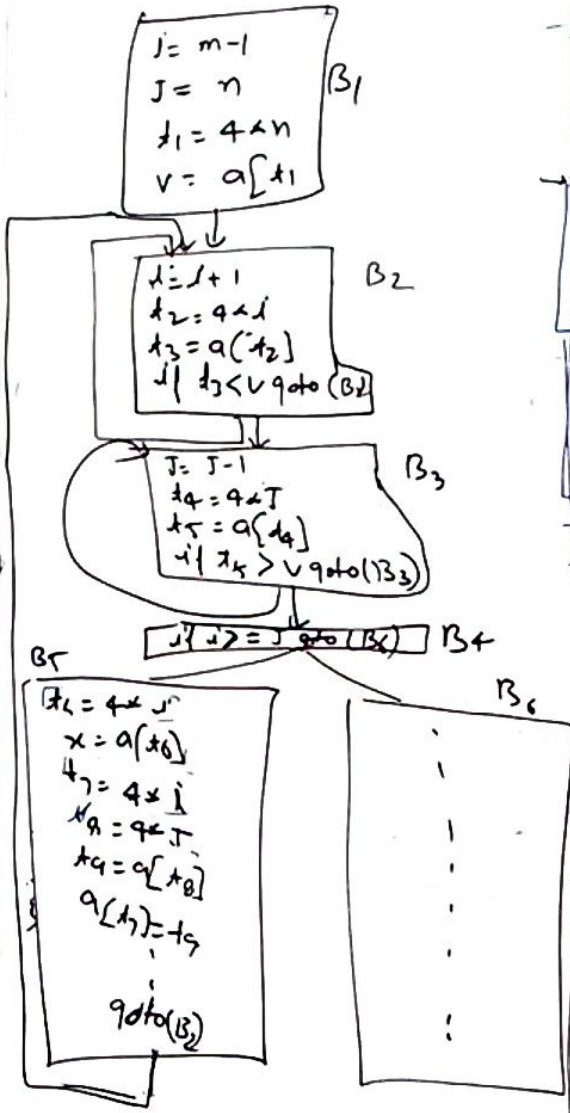 i = m-1
J = n
t1 = 4*n
v = a[t1
B1
i = i+1
t2 = 4*i
t3 = a(t2]
if t3 < v goto (B2
B2
J = J-1
t4 = 4*J
t5 = a[t4]
if t5 > v goto (B3)
B3
if i >= J goto (B6)
B4
B5
t6 = 4* i
x = a(t6]
t7 = 4* i
t8 = 4* J
t9 = a[t8]
a[t7] = t9
goto (B2)
B6